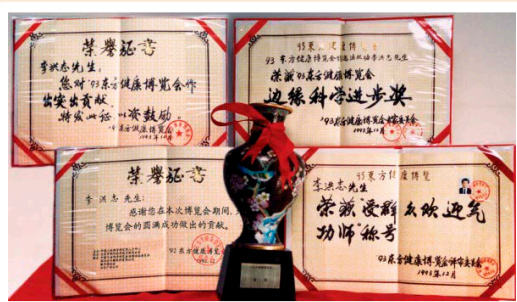 荣誉证书
李洪志先生：
您对'93东方健康博览会作
出突出贡献，
特发此证，以资鼓励
'93东方健康博览会
1993年12月
93东方健康博览会
荣获'93东方健康博览会
边缘科学进步奖
'93东方健康博览会
1993年12月
荣誉证书
李洪志先生：
感谢您在本次博览会期间，
博览会的圆满成功做出的贡献。
'92东方健康博览
93东方健康博览
李洪志先生
荣获"受群众欢迎气
功师"称号
93东方健康博览会评审委员会
1993年12月